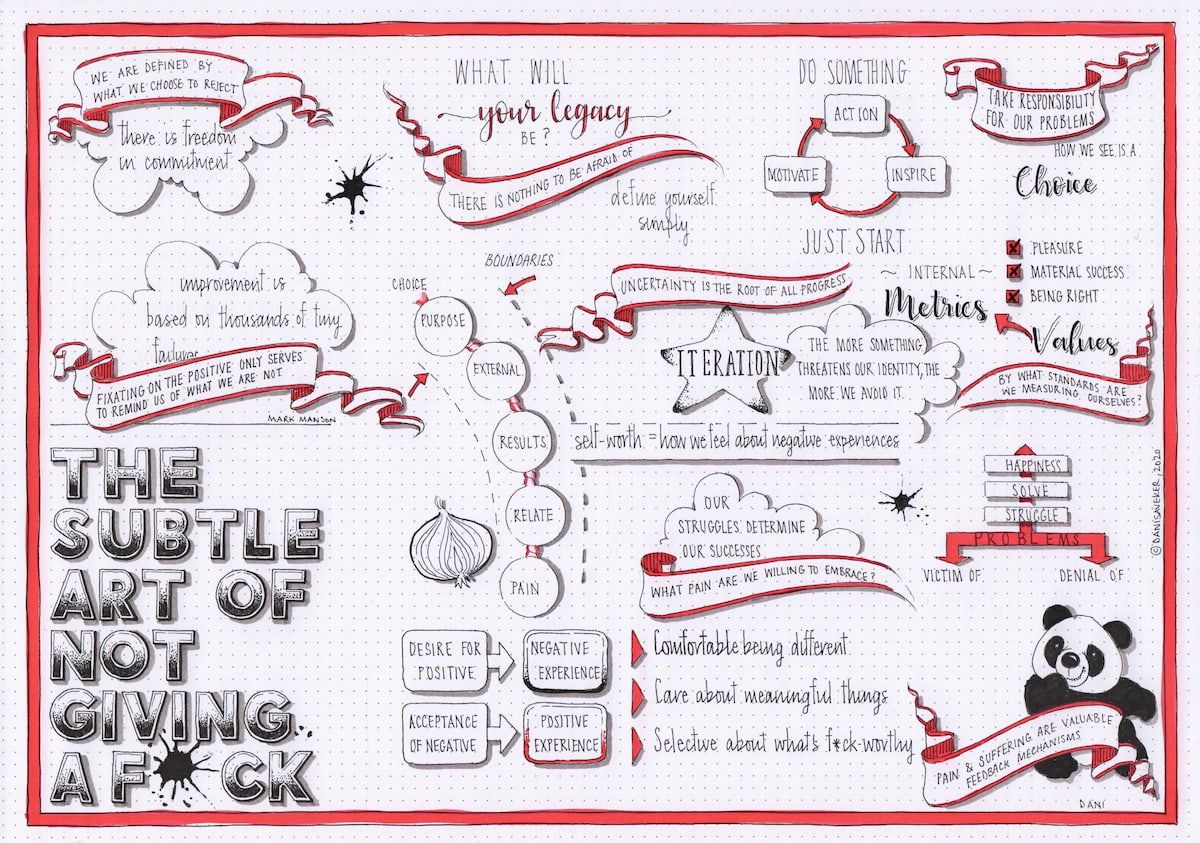 WE ARE DEFINED BY
WHAT WE CHOOSE TO REJECT
there is freedom
in commitment
WHAT WILL
your legacy
BE?
THERE IS NOTHING TO BE AFRAID OF
define yourself
simply
DO SOMETHING
ACTION
MOTIVATE
INSPIRE
JUST START
TAKE RESPONSIBILITY
FOR OUR PROBLEMS
HOW WE SEE IS A
Choice
improvement is
based on thousands of tiny
failures
FIXATING ON THE POSITIVE ONLY SERVES
TO REMIND US OF WHAT WE ARE NOT
MARK MANSON
CHOICE
BOUNDARIES
PURPOSE
EXTERNAL
RESULTS
RELATE
PAIN
UNCERTAINTY IS THE ROOT OF ALL PROGRESS
ITERATION
THE MORE SOMETHING
THREATENS OUR IDENTITY, THE
MORE WE AVOID IT.
self-worth = how we feel about negative experiences
~ INTERNAL ~
Metrics
PLEASURE
MATERIAL SUCCESS
BEING RIGHT
Values
BY WHAT STANDARDS ARE
WE MEASURING OURSELVES?
THE
SUBTLE
ART OF
NOT
GIVING
A F*CK
OUR
STRUGGLES DETERMINE
OUR SUCCESSES
WHAT PAIN ARE WE WILLING TO EMBRACE?
HAPPINESS
SOLVE
STRUGGLE
PROBLEMS
VICTIM OF
DENIAL OF
©DANISAVEKER, 2020
DESIRE FOR
POSITIVE
NEGATIVE
EXPERIENCE
ACCEPTANCE
OF NEGATIVE
POSITIVE
EXPERIENCE
Comfortable being different
Care about meaningful things
Selective about whats f*ck-worthy
PAIN & SUFFERING ARE VALUABLE
FEEDBACK MECHANISMS
DANI